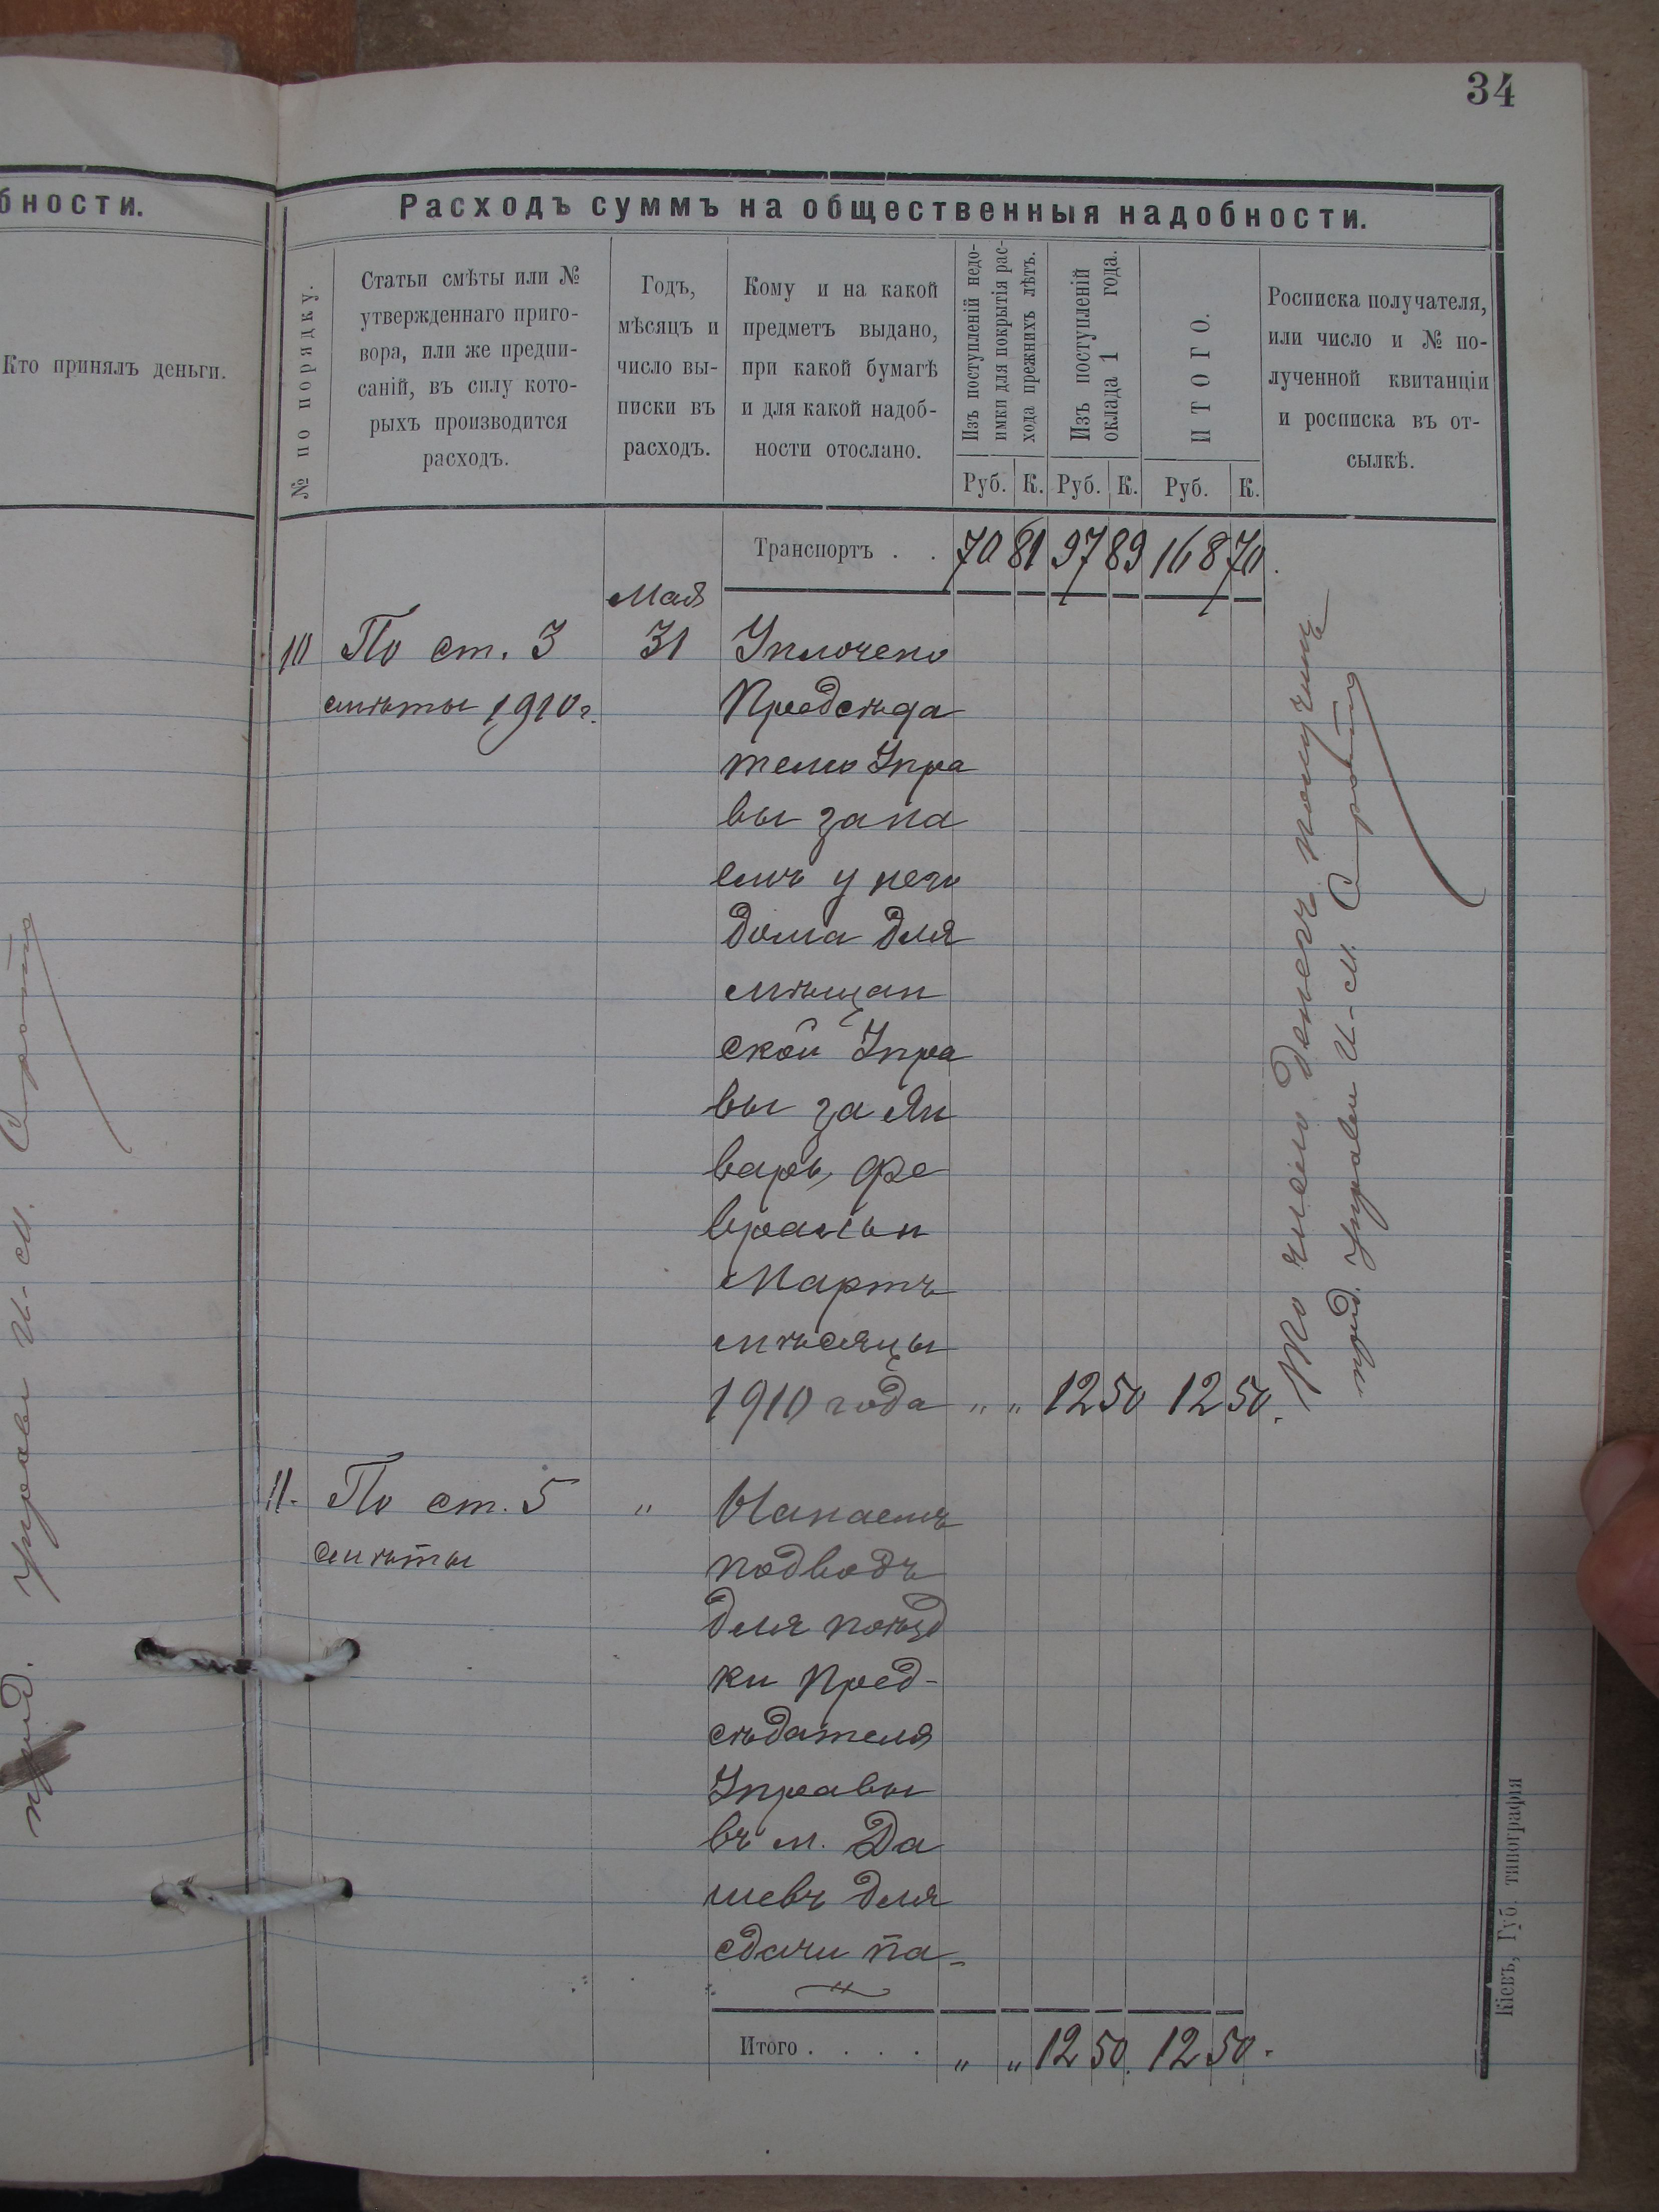 34
бности.
Кто принялъ деньги.
Расходъ суммъ на общественныя надобности.
№ по порядку.
Статьи смѣты или №
утвержденнаго приго-
вора, или же предпи-
саній, въ силу кото-
рыхъ производится
расходъ.
Годъ,
мѣсяцъ и
число вы-
писки въ
расходъ.
Кому и на какой
предметъ выдано,
при какой бумагѣ
и для какой надоб-
ности отослано.
Изъ поступленій недо-
имки для покрытія рас-
хода прежнихъ лѣтъ.
Изъ поступленій
оклада 1 года.
ИТОГО.
Росписка получателя,
или число и № по-
лученной квитанціи
и росписка въ от-
сылкѣ.
Руб. К. Руб. К. Руб. К.
Транспортъ . . 70 81 97 89 168 70.
Мая
10 По ст. 3 31 Уплочено
смѣты 1910 г. Предсѣда
телю Упра
вы за на
емъ у него
дома для
мѣщан
ской Упра
вы за Ян
варь, Фе
враль и
Мартъ
мѣсяцы
1910 года „ „ 12 50 12 50.
То число денегъ получилъ
пред. управы И-М. Сирота
11. По ст. 5 „ Нанаемъ
смѣты подводъ
для поѣзд
ки Пред-
сѣдателя
Управы
въ м. Да
шевъ для
сдачи па-
Итого . . . . „ „ 12 50. 12 50.
пред. управы И-М. Сирота
Кіевъ, Губ. типографія